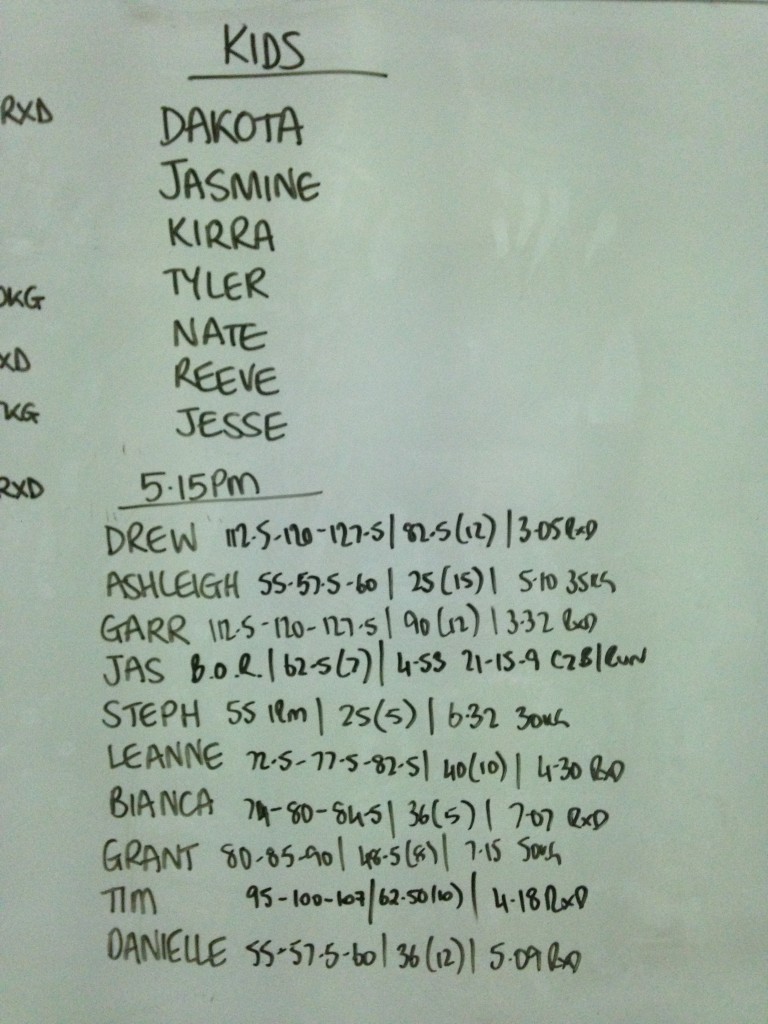 KIDS
RXD
DAKOTA
JASMINE
KIRRA
TYLER
KG
NATE
XD
REEVE
KG
JESSE
RXD
5.15PM
DREW 112.5-120-127.5 | 82.5(12) | 3.05 RXD
ASHLEIGH 55-57.5-60 | 25(15) | 5.10 35KG
GARR 112.5-120-127.5 | 90(12) | 3.32 RXD
JAS B.O.R. | 62.5(7) | 4.53 21-15-9 C2B/RUN
STEPH 55 1RM | 25(5) | 6.32 30KG
LEANNE 72.5-77.5-82.5 | 40(10) | 4.30 RXD
BIANCA 74-80-84.5 | 36(5) | 7.07 RXD
GRANT 80-85-90 | 48.5(8) | 7.15 50KG
TIM 95-100-107 | 62.50(10) | 4.18 RXD
DANIELLE 55-57.5-60 | 36(12) | 5.09 RXD